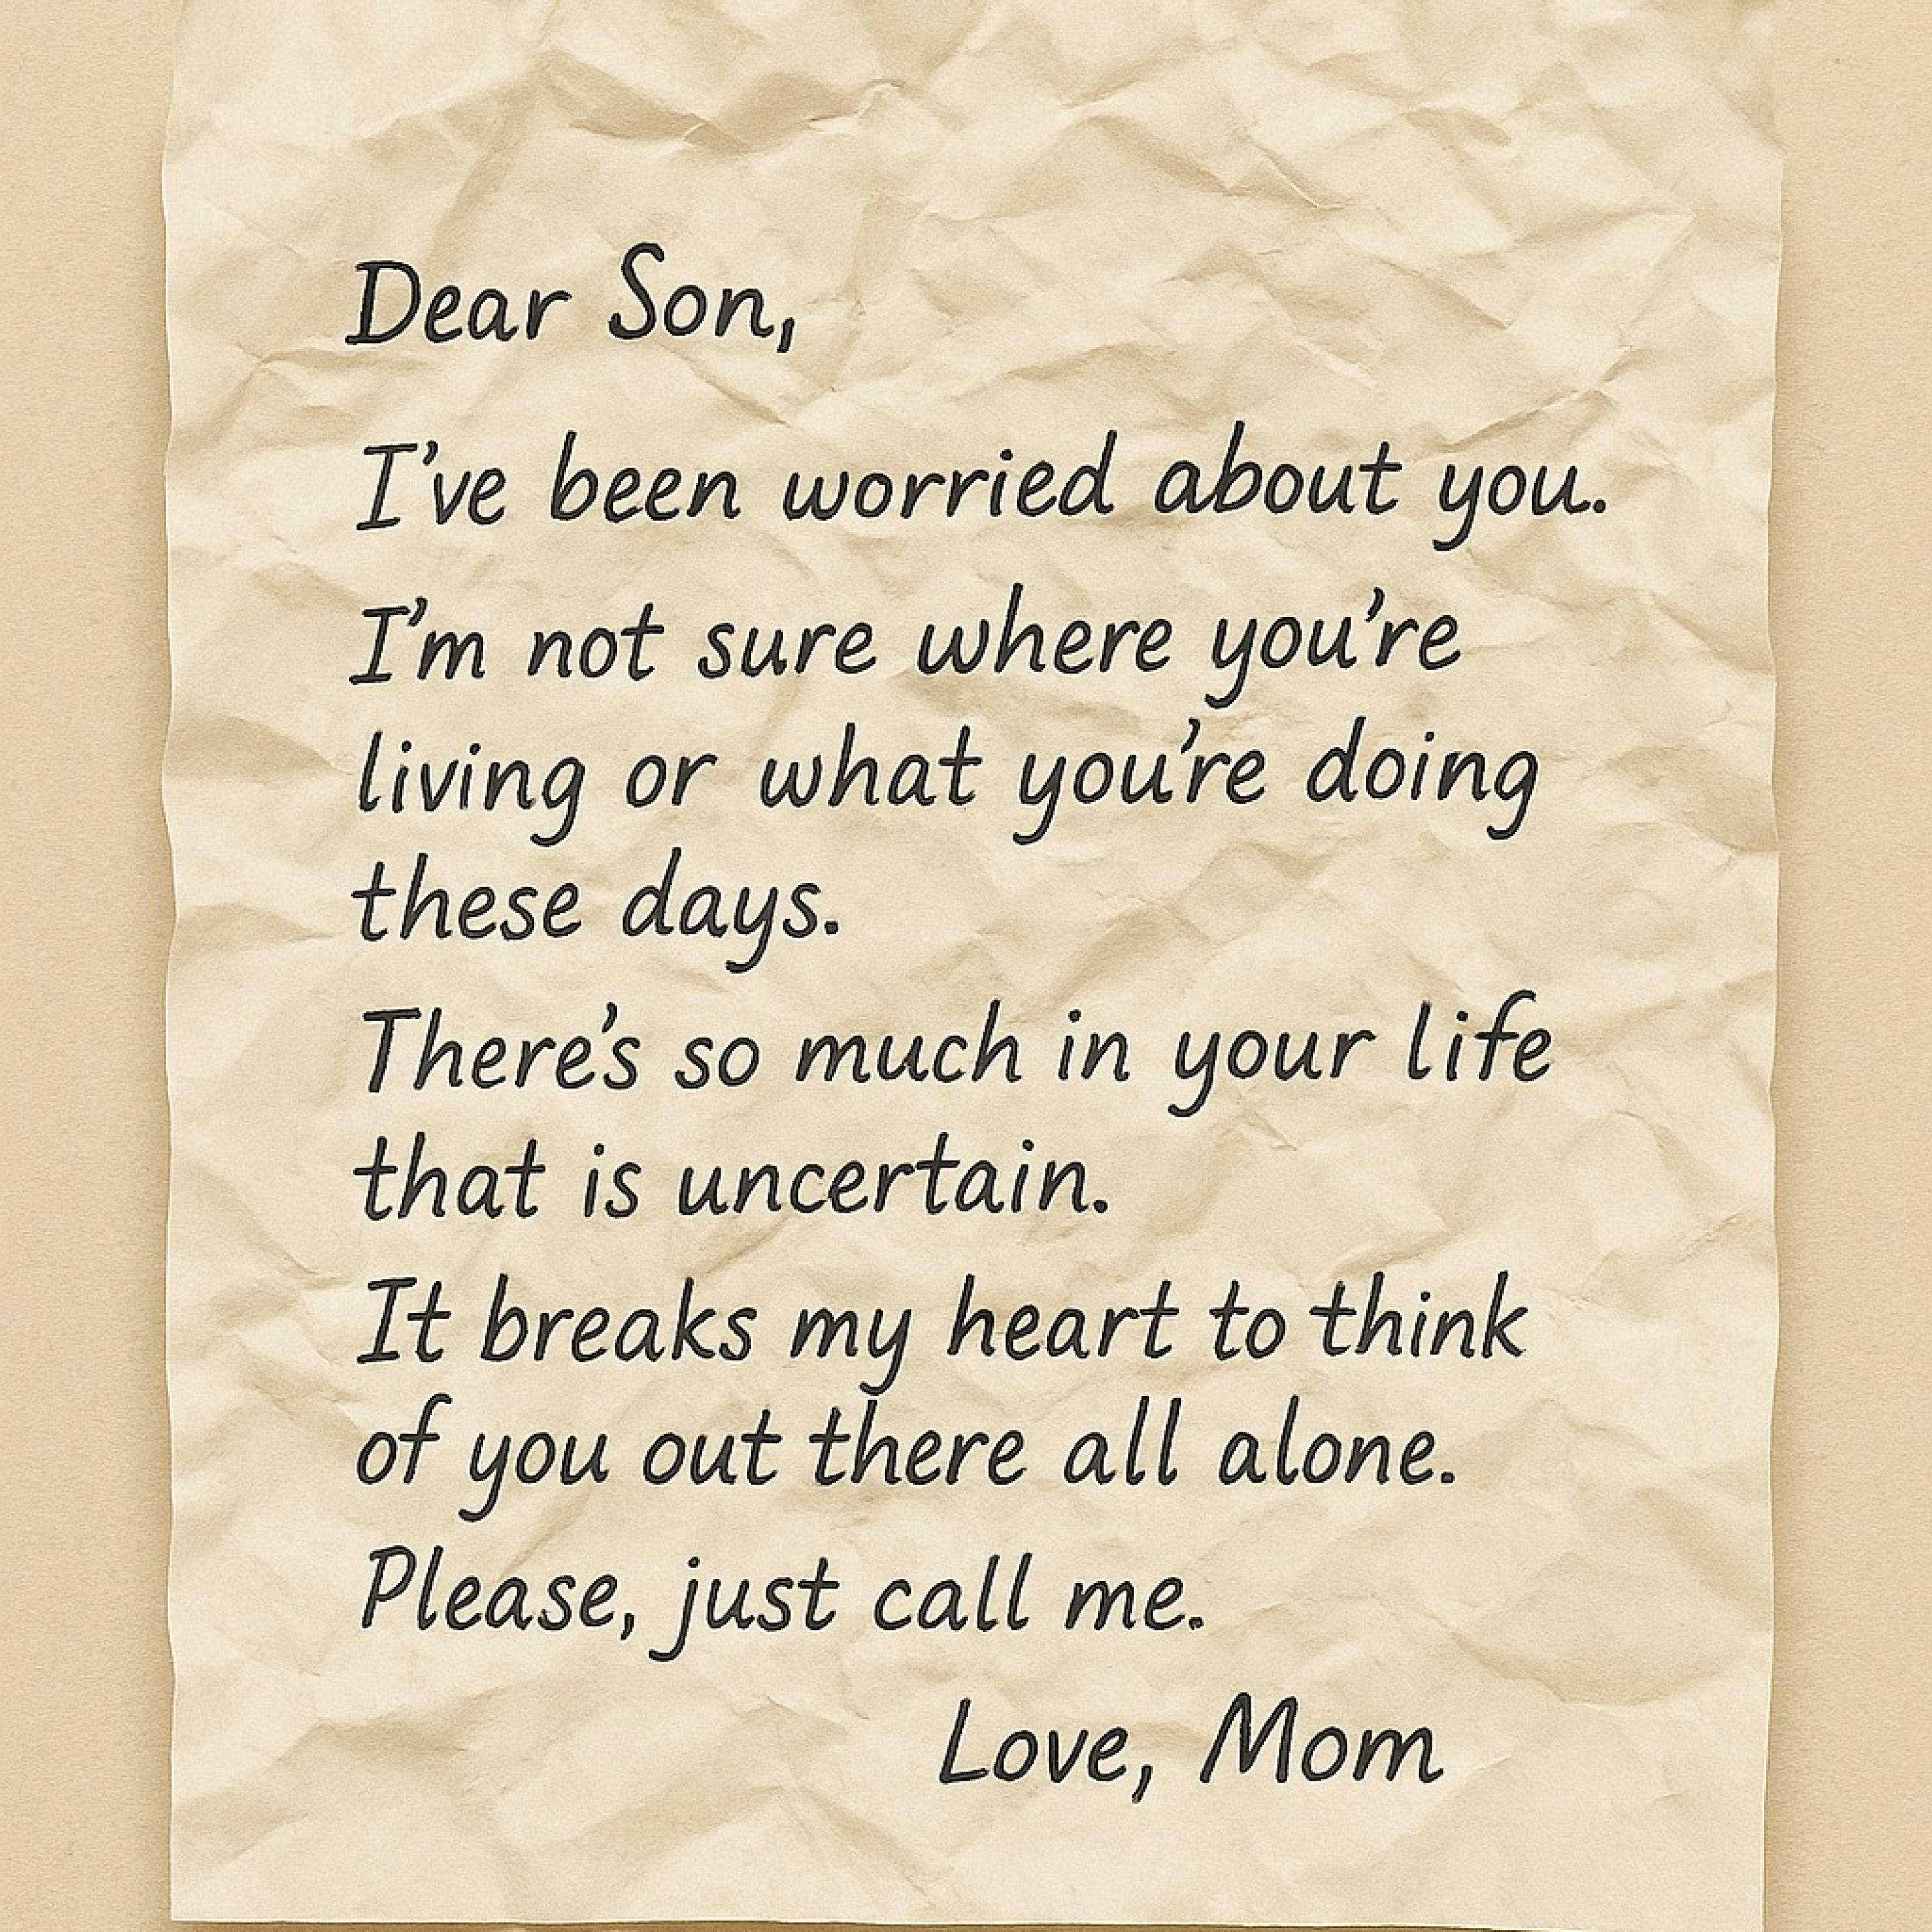 Dear Son,
I've been worried about you.
I'm not sure where you're
living or what you're doing
these days.
There's so much in your life
that is uncertain.
It breaks my heart to think
of you out there all alone.
Please, just call me.
Love, Mom